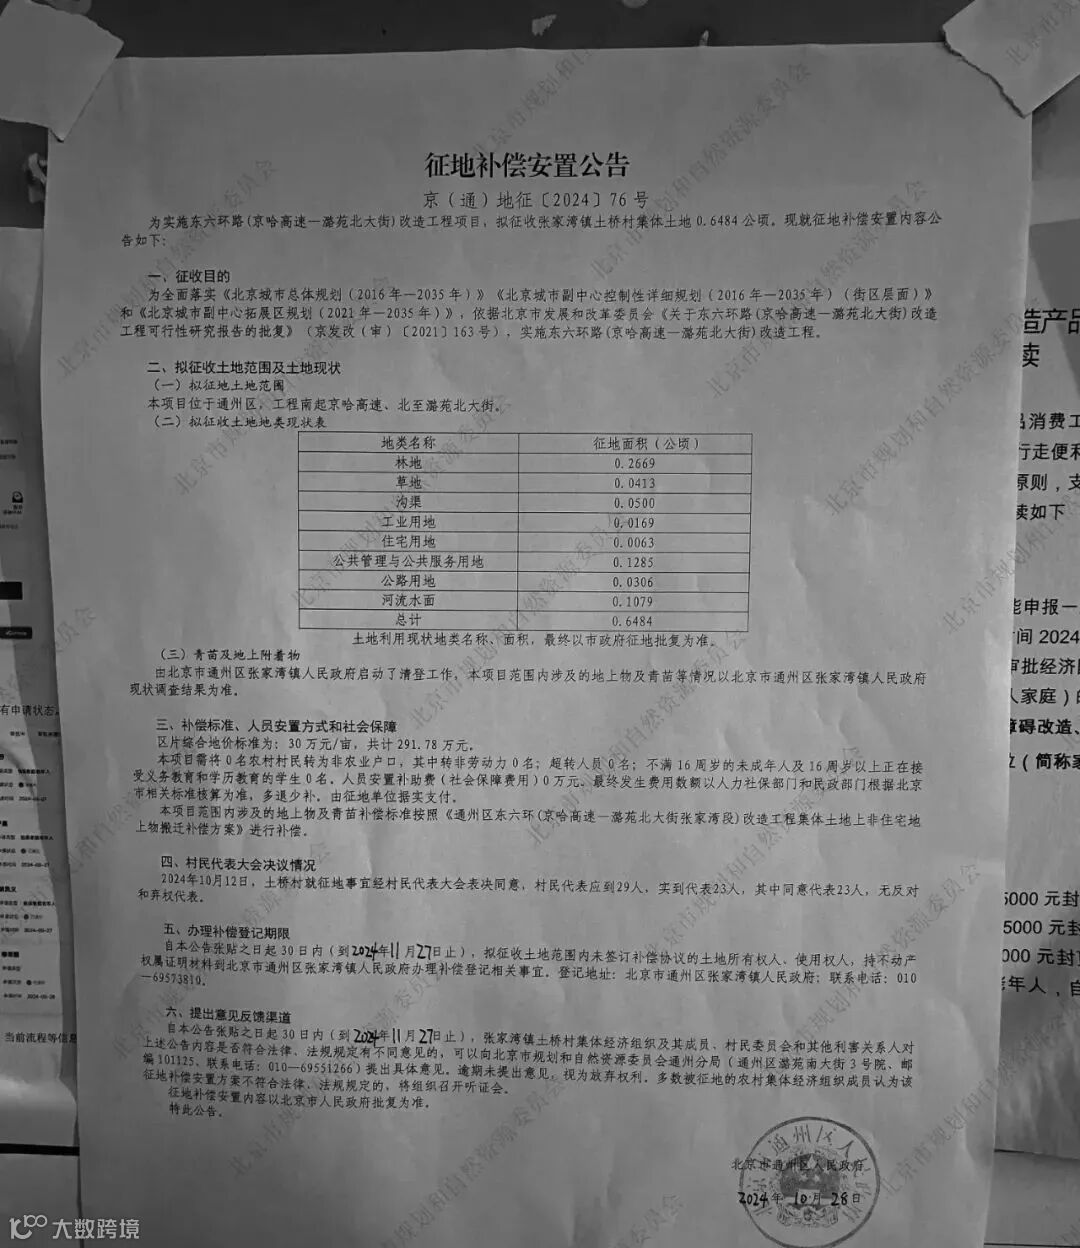 征地补偿安置公告
京（通）地征〔2024〕76号
为实施东六环路(京哈高速—潞苑北大街)改造工程项目，拟征收张家湾镇土桥村集体土地0.6484公顷。现就征地补偿安置内容公
告如下:
一、征收目的
为全面落实《北京城市总体规划（2016年—2035年）》《北京城市副中心控制性详细规划（2016年—2035年）（街区层面）》
和《北京城市副中心拓展区规划（2021年—2035年）》，依据北京市发展和改革委员会《关于东六环路(京哈高速—潞苑北大街)改造
工程可行性研究报告的批复》（京发改（审）〔2021〕163号），实施东六环路(京哈高速—潞苑北大街)改造工程。
二、拟征收土地范围及土地现状
（一）拟征地土地范围
本项目位于通州区，工程南起京哈高速、北至潞苑北大街。
（二）拟征收土地地类现状表
地类名称 征地面积（公顷）
林地 0.2669
草地 0.0413
沟渠 0.0500
工业用地 0.0169
住宅用地 0.0063
公共管理与公共服务用地 0.1285
公路用地 0.0306
河流水面 0.1079
总计 0.6484
土地利用现状地类名称、面积，最终以市政府征地批复为准。
（三）青苗及地上附着物
由北京市通州区张家湾镇人民政府启动了清登工作，本项目范围内涉及的地上物及青苗等情况以北京市通州区张家湾镇人民政府
现状调查结果为准。
三、补偿标准、人员安置方式和社会保障
区片综合地价标准为：30万元/亩，共计291.78万元。
本项目需将0名农村村民转为非农业户口，其中转非劳动力0名；超转人员0名；不满16周岁的未成年人及16周岁以上正在接
受义务教育和学历教育的学生0名。人员安置补助费（社会保障费用）0万元。最终发生费用数额以人力社保部门和民政部门根据北京
市相关标准核算为准，多退少补。由征地单位据实支付。
本项目范围内涉及的地上物及青苗补偿标准按照《通州区东六环(京哈高速—潞苑北大街张家湾段)改造工程集体土地上非住宅地
上物搬迁补偿方案》进行补偿。
四、村民代表大会决议情况
2024年10月12日，土桥村就征地事宜经村民代表大会表决同意，村民代表应到29人，实到代表23人，其中同意代表23人，无反对
和弃权代表。
五、办理补偿登记期限
自本公告张贴之日起30日内（到2024年11月27日止），拟征收土地范围内未签订补偿协议的土地所有权人、使用权人，持不动产
权属证明材料到北京市通州区张家湾镇人民政府办理补偿登记相关事宜。登记地址：北京市通州区张家湾镇人民政府；联系电话：010
—69573810。
六、提出意见反馈渠道
自本公告张贴之日起30日内（到2024年11月27日止），张家湾镇土桥村集体经济组织及其成员、村民委员会和其他利害关系人对
上述公告内容是否符合法律、法规规定有不同意见的，可以向北京市规划和自然资源委员会通州分局（通州区潞苑南大街3号院、邮
编101125、联系电话：010—69551266）提出具体意见。逾期未提出意见，视为放弃权利。多数被征地的农村集体经济组织成员认为该
征地补偿安置方案不符合法律、法规规定的，将组织召开听证会。
征地补偿安置内容以北京市人民政府批复为准。
特此公告。
北京市通州区人民政府
2024年10月28日
造产品
续
品消费工
行走便利
原则，支
续如下
能申报一
时间2024
审批经济
人家庭）的
障碍改造、
位（简称家
5000元封
5000元封
000元封顶
老年人，自
有申请状态。
当前流程等信息
大数跨境